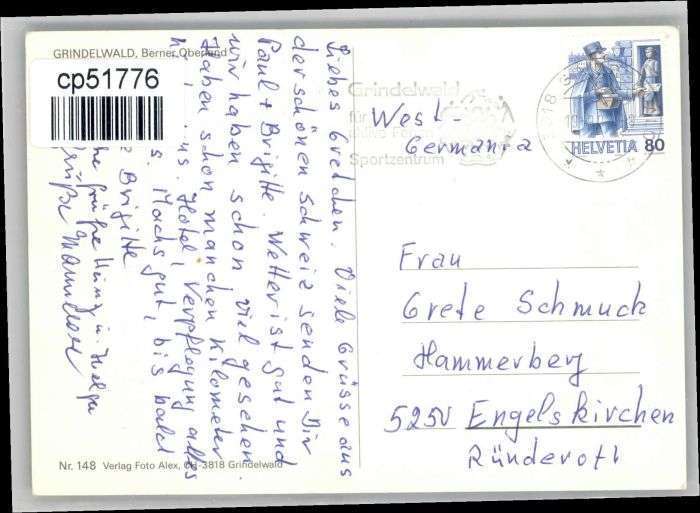 GRINDELWALD, Berner Oberland
cp51776
Liebes Gretchen. Viele Grüsse aus
der schönen Schweiz senden Dir
Paul + Brigitte. Wetter ist gut und
wir haben schon viel gesehen.
Haben schon manchen Kilometer
us. Hotel, Verpflegung alles
s. Machs gut, bis bald
Brigitte
Grüße Marmelore
Nr. 148 Verlag Foto Alex, CH-3818 Grindelwald
Grindelwald
für
Sportzentrum
3818
HELVETIA 80
West-
Germania
Frau
Grete Schmuck
Hammerberg
5250 Engelskirchen
Ründeroth